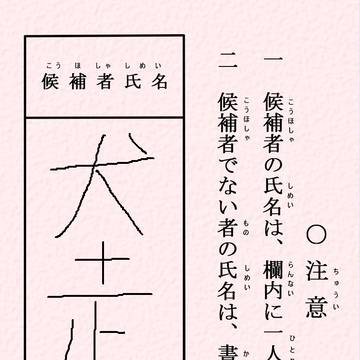 ちゅうい
○注意
こうほしゃ しめい らんない ひと
一 候補者の氏名は、欄内に一人
こうほしゃ もの しめい か
二 候補者でない者の氏名は、書
こう ほ しゃ し めい
候補者氏名
犬